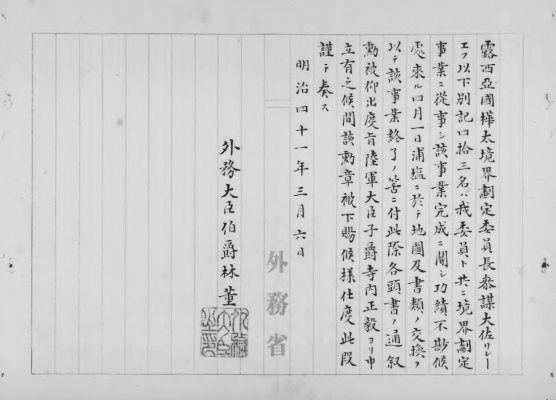 露西亞國樺太境界劃定委員長參謀大佐リレー
エフ以下別記四拾三名ハ我委員ト共ニ境界劃定
事業ニ從事シ該事業完成ニ關シ功績不尠候
處來ル四月一日浦塩ニ於テ地圖及書類ノ交換ヲ
以テ該事業終了ノ筈ニ付此際各頭書ノ通叙
勳被仰出度旨陸軍大臣子爵寺内正毅ヨリ申
立有之候間該勳章被下賜候樣仕度此段
謹テ奏ス
明治四十一年三月六日
外務大臣伯爵林董
外務省